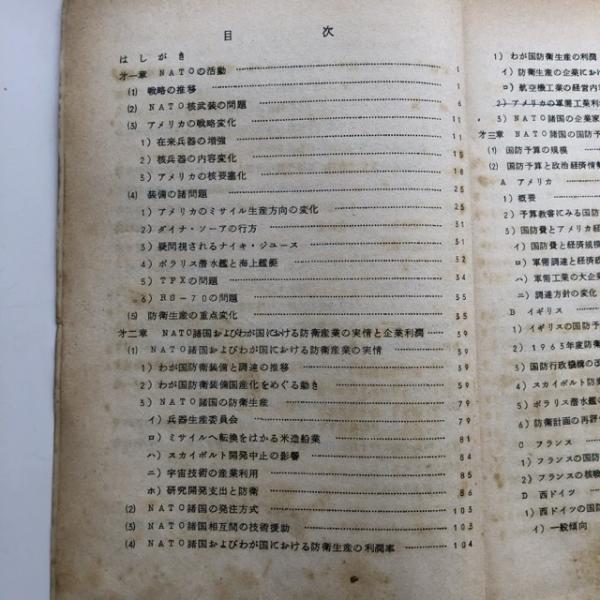 目 次
はしがき
才一章 NATOの活動 1
(1) 戦略の推移 1
(2) NATO核武装の問題 6
(3) アメリカの戦略変化 11
1) 在来兵器の増強 11
2) 核兵器の内容変化 15
3) アメリカの核要塞化 18
(4) 装備の諸問題 25
1) アメリカのミサイル生産方向の変化 25
2) ダイナ・ソーアの行方 31
3) 疑問視されるナイキ・ジユース 31
4) ポラリス潜水艦と海上艦艇 32
5) TFXの問題 34
6) RS-70の問題 35
(5) 防衛生産の重点変化 35
才二章 NATO諸国およびわが国における防衛産業の実情と企業利潤 39
(1) NATO諸国およびわが国における防衛産業の実情 39
1) わが国防衛装備と調達の推移 39
2) わが国防衛装備国産化をめぐる動き 59
3) NATO諸国の防衛生産 79
イ) 兵器生産委員会 79
ロ) ミサイルへ転換をはかる米造船業 81
ハ) スカイボルト開発中止の影響 84
ニ) 宇宙技術の産業利用 85
ホ) 研究開発支出と防衛 86
(2) NATO諸国の発注方式 103
(3) NATO諸国相互間の技術援助 103
(4) NATO諸国およびわが国における防衛生産の利潤率 104
1) わが国防衛生産の利潤
イ) 防衛生産の企業にお
ロ) 航空機工業の経営内
2) アメリカの軍需工業利
3) NATO諸国の企業家
才三章 NATO諸国の国防予
(1) 国防予算の規模
(2) 国防予算と政治経済情勢
A アメリカ
1) 概要
2) 予算教書にみる国防
3) 国防費とアメリカ経
イ) 国防費と経済規模
ロ) 軍需調達と経済政
ハ) 軍需工業の大企
ニ) 調達方針の変化
B イギリス
1) イギリスの国防予
2) 1963年度防衛
3) 国防行政機構の改
4) スカイボルト防衛
5) ポラリス潜水艦の
6) 防衛計画の再評
C フランス
1) フランスの国防
2) フランスの核戦
D 西ドイツ
1) 西ドイツの国防
イ) 一般傾向